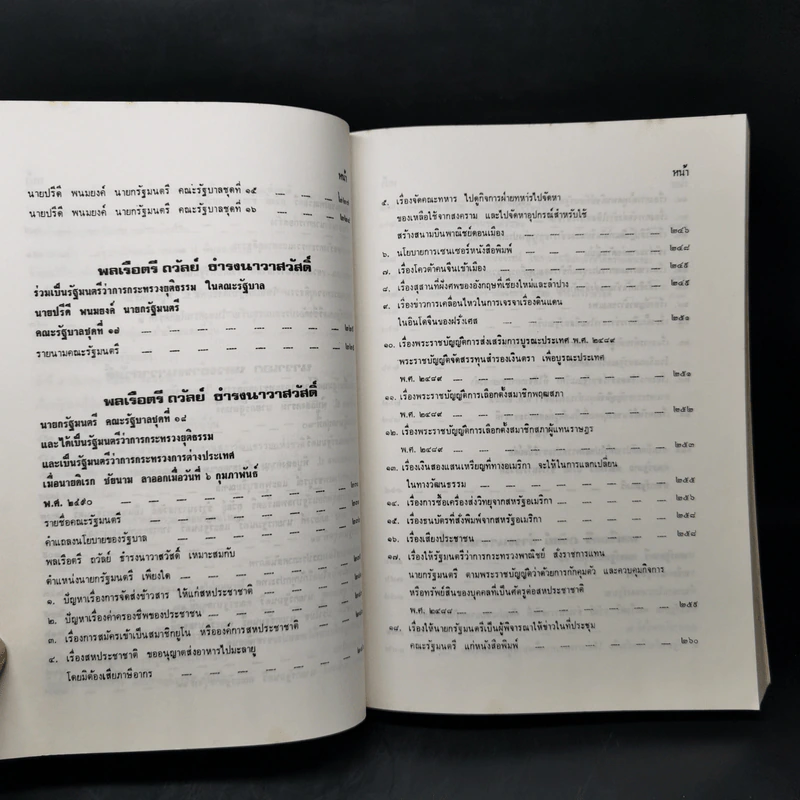 หน้า
นายปรีดี พนมยงค์ นายกรัฐมนตรี คณะรัฐบาลชุดที่ ๑๕
นายปรีดี พนมยงค์ นายกรัฐมนตรี คณะรัฐบาลชุดที่ ๑๖
พลเรือตรี ถวัลย์ ธำรงนาวาสวัสดิ์
ร่วมเป็นรัฐมนตรีว่าการกระทรวงยุติธรรม ในคณะรัฐบาล
นายปรีดี พนมยงค์ นายกรัฐมนตรี
คณะรัฐบาลชุดที่ ๑๗
รายนามคณะรัฐมนตรี
พลเรือตรี ถวัลย์ ธำรงนาวาสวัสดิ์
นายกรัฐมนตรี คณะรัฐบาลชุดที่ ๑๘
และได้เป็นรัฐมนตรีว่าการกระทรวงยุติธรรม
และเป็นรัฐมนตรีว่าการกระทรวงการต่างประเทศ
เมื่อนายดิเรก ชัยนาม ลาออกเมื่อวันที่ ๖ กุมภาพันธ์
พ.ศ. ๒๔๙๐
รายชื่อคณะรัฐมนตรี
คำแถลงนโยบายของรัฐบาล
พลเรือตรี ถวัลย์ ธำรงนาวาสวัสดิ์ เหมาะสมกับ
ตำแหน่งนายกรัฐมนตรี เพียงใด
๑. ปัญหาเรื่องการจัดส่งข้าวสาร ให้แก่สหประชาชาติ
๒. ปัญหาเรื่องค่าครองชีพของประชาชน
๓. เรื่องการสมัครเข้าเป็นสมาชิกยูโน หรือองค์การสหประชาชาติ
๔. เรื่องสหประชาชาติ ขออนุญาตส่งอาหารไปมะลายู
โดยมิต้องเสียภาษีอากร
หน้า
๕. เรื่องจัดคณะทหาร ไปดูกิจการฝ่ายทหารไปจัดหา
ของเหลือใช้จากสงคราม และไปจัดหาอุปกรณ์สำหรับใช้
สร้างสนามบินพาณิชย์ดอนเมือง ๒๔๖
๖. นโยบายการเซนเซอร์หนังสือพิมพ์ ๒๔๘
๗. เรื่องโควต้าคนจีนเข้าเมือง ๒๔๕
๘. เรื่องสุสานที่ฝังศพของอังกฤษที่เชียงใหม่และลำปาง ๒๔๕
๙. เรื่องข่าวการเคลื่อนไหวในการเจรจาเรื่องดินแดน
ในอินโดจีนของฝรั่งเศส ๒๕๑
๑๐. เรื่องพระราชบัญญัติการส่งเสริมการบูรณะประเทศ พ.ศ. ๒๔๘๙
พระราชบัญญัติจัดสรรทุนสำรองเงินตรา เพื่อบูรณะประเทศ
พ.ศ. ๒๔๘๙ ๒๕๑
๑๑. เรื่องพระราชบัญญัติการเลือกตั้งสมาชิกพฤฒสภา
พ.ศ. ๒๔๘๙ ๒๕๒
๑๒. เรื่องพระราชบัญญัติการเลือกตั้งสมาชิกสภาผู้แทนราษฎร
พ.ศ. ๒๔๘๙ ๒๕๓
๑๓. เรื่องเงินสองแสนเหรียญที่ทางอเมริกา จะให้ในการแลกเปลี่ยน
ในทางวัฒนธรรม ๒๕๕
๑๔. เรื่องการซื้อเครื่องส่งวิทยุจากสหรัฐอเมริกา ๒๕๖
๑๕. เรื่องธนบัตรที่สั่งพิมพ์จากสหรัฐอเมริกา ๒๕๘
๑๖. เรื่องเสียงประชาชน ๒๕๘
๑๗. เรื่องให้รัฐมนตรีว่าการกระทรวงพาณิชย์ สั่งราชการแทน
นายกรัฐมนตรี ตามพระราชบัญญัติว่าด้วยการกักคุมตัว และควบคุมกิจการ
หรือทรัพย์สินของบุคคลที่เป็นศัตรูต่อสหประชาชาติ
พ.ศ. ๒๔๘๘ ๒๕๕
๑๘. เรื่องให้นายกรัฐมนตรีเป็นผู้พิจารณาให้ข่าวในที่ประชุม
คณะรัฐมนตรี แก่หนังสือพิมพ์ ๒๖๐